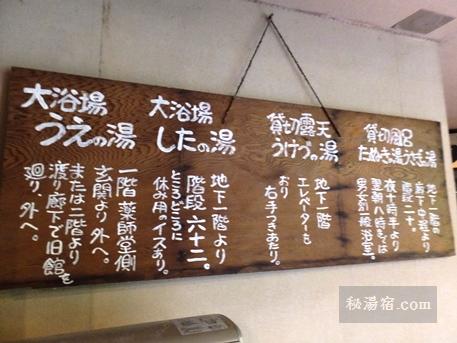 貸切風呂
たぬき湯うさぎ湯
地下一階の
廊下中程より
階段二十。
夜十時半より
翌朝八時までは
男女別一般浴室。
貸切露天
うけづの湯
地下一階
エレベーターを
おり
右手つきあたり。
大浴場
したの湯
地下一階より
階段六十二。
ところどころに
休み用のイスあり。
大浴場
うえの湯
一階 薬師堂側
玄関より外へ。
または二階より
渡り廊下で旧館を
廻り、外へ。
秘湯宿.com